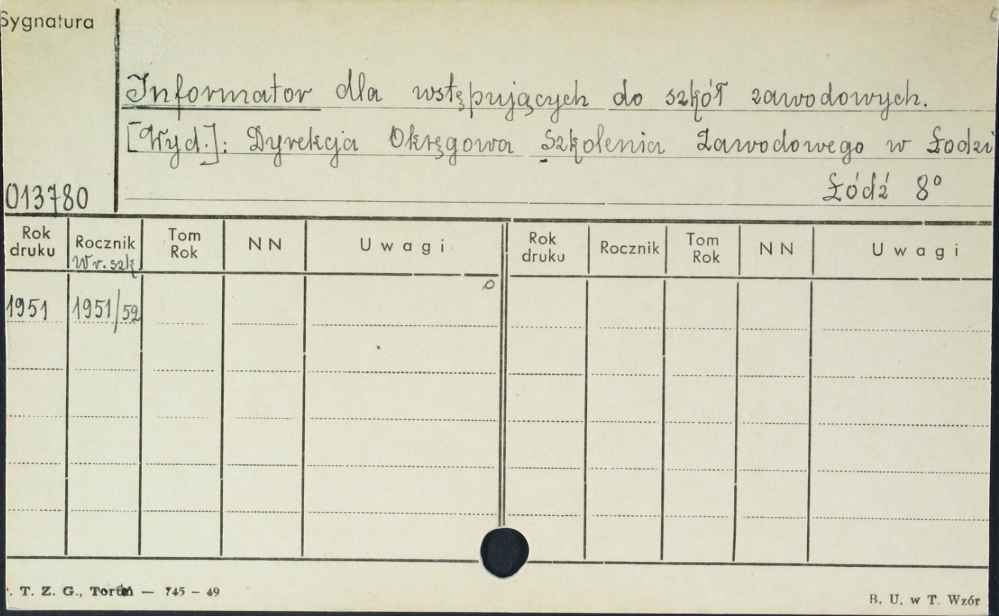 Sygnatura
Informator dla wstępujących do szkół zawodowych.
[Wyd.]: Dyrekcja Okręgowa Szkolenia Zawodowego w Łodzi
013780
Łódź 8°
Rok druku Rocznik W r. szk Tom Rok NN Uwagi Rok druku Rocznik Tom Rok NN Uwagi
1951 1951/52
T. Z. G., Toruń — 745 – 49
B. U. w T. Wzór